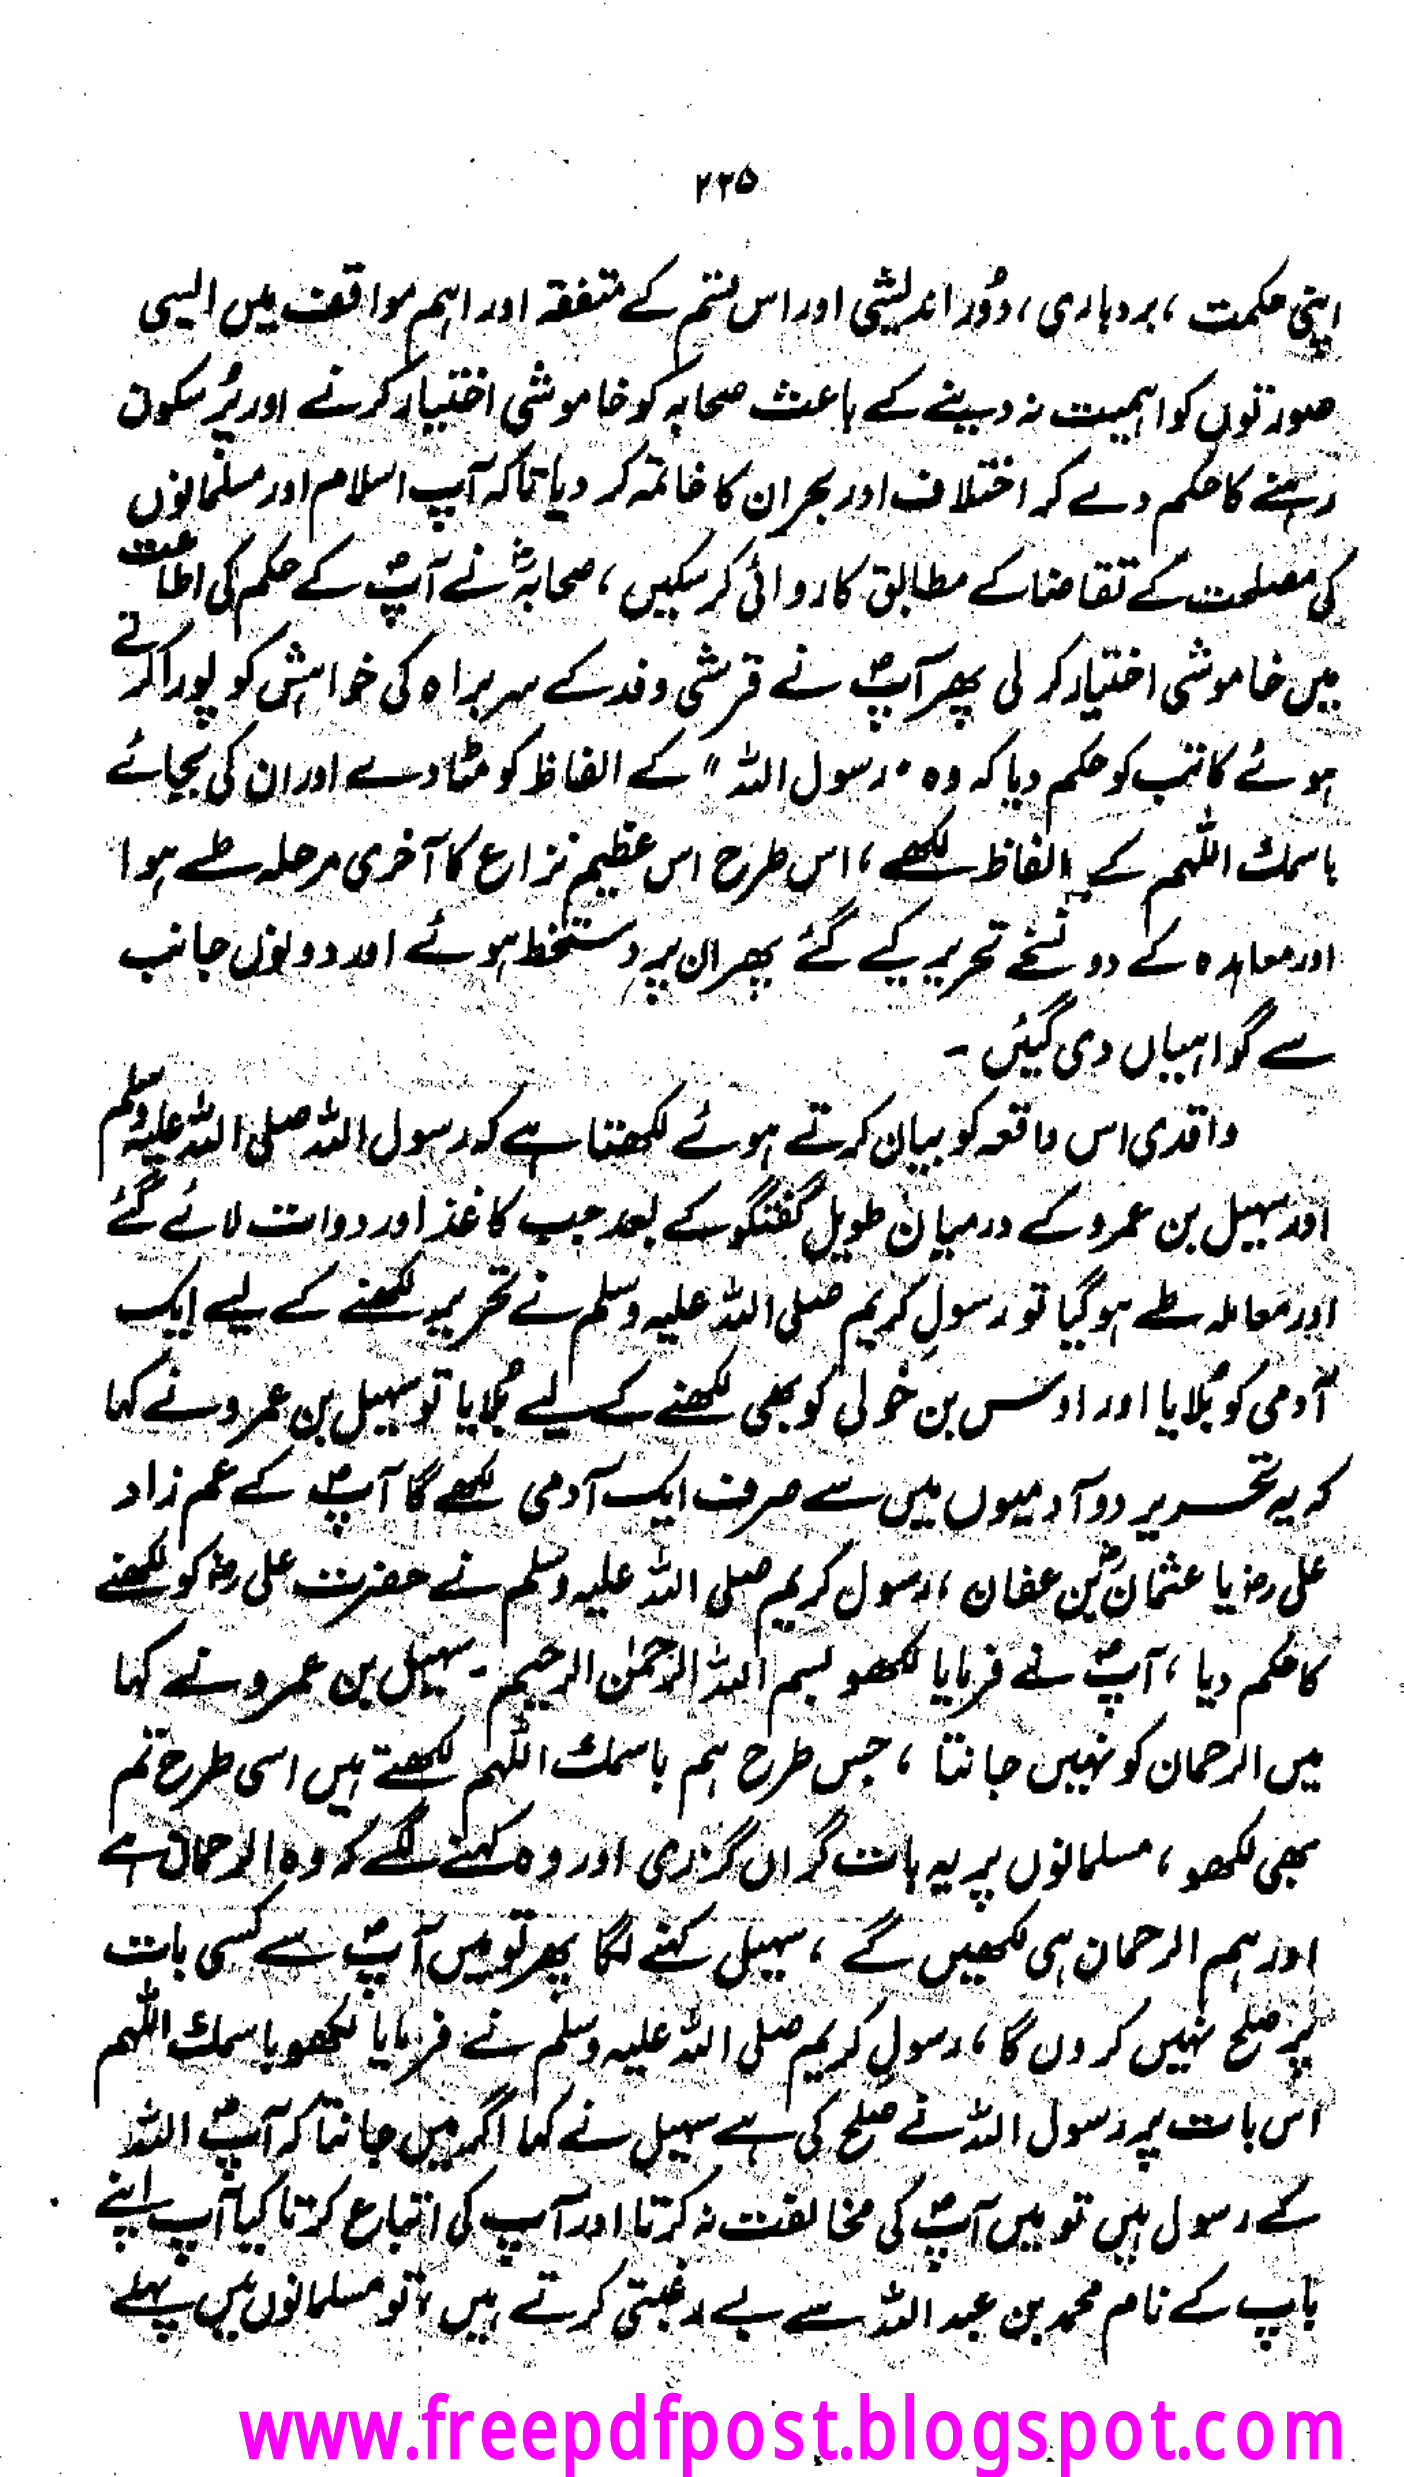 ۲۲۵
اپنی حکمت ، بردباری ، دُور اندیشی اور اس قسم کے متفقہ اور اہم مواقف میں ایسی
صورتوں کو اہمیت نہ دینے کے باعث صحابہ کو خاموشی اختیار کرنے اور پُر سکون
رہنے کا حکم دے کر اختلاف اور بحران کا خاتمہ کر دیا تاکہ آپ اسلام اور مسلمانوں
کی مصلحت کے تقاضا کے مطابق کاروائی کر سکیں ، صحابہؓ نے آپؐ کے حکم کی اطاعت
میں خاموشی اختیار کر لی پھر آپؐ نے قرشی وفد کے سربراہ کی خواہش کو پورا کرتے
ہوئے کاتب کو حکم دیا کہ وہ " رسول اللہ " کے الفاظ کو مٹا دے اور ان کی بجائے
باسمك اللّٰہم کے الفاظ لکھے ، اس طرح اس عظیم نزاع کا آخری مرحلہ طے ہوا
اور معاہدہ کے دو نسخے تحریر کیے گئے پھر ان پر دستخط ہوئے اور دونوں جانب
سے گواہیاں دی گئیں ۔
واقدی اس واقعہ کو بیان کرتے ہوئے لکھتا ہے کہ رسول اللہ صلی اللہ علیہ وسلم
اور سہیل بن عمرو کے درمیان طویل گفتگو کے بعد جب کاغذ اور دوات لائے گئے
اور معاملہ طے ہو گیا تو رسولِ کریم صلی اللہ علیہ وسلم نے تحریر لکھنے کے لیے ایک
آدمی کو بُلایا اور اوس بن خولی کو بھی لکھنے کے لیے بُلایا تو سہیل بن عمرو نے کہا
کہ یہ تحریر دو آدمیوں میں سے صرف ایک آدمی لکھے گا آپؐ کے عم زاد
علی رضؓ یا عثمانؓ بن عفان ، رسول کریم صلی اللہ علیہ وسلم نے حضرت علی رضؓ کو لکھنے
کا حکم دیا ، آپؐ نے فرمایا لکھو بسم اللہ الرحمٰن الرحیم ۔ سہیل بن عمرو نے کہا
میں الرحمان کو نہیں جانتا ، جس طرح ہم باسمك اللّٰہم لکھتے ہیں اسی طرح تم
بھی لکھو ، مسلمانوں پر یہ بات گراں گزری اور وہ کہنے لگے کہ وہ الرحمان ہے
اور ہم الرحمان ہی لکھیں گے ، سہیل کہنے لگا پھر تو میں آپؐ سے کسی بات
پر صلح نہیں کروں گا ، رسولِ کریم صلی اللہ علیہ وسلم نے فرمایا لکھو باسمك اللّٰہم
اس بات پر رسول اللہ نے صلح کی ہے سہیل نے کہا اگر میں جانتا کہ آپؐ اللہ
کے رسول ہیں تو میں آپؐ کی مخالفت نہ کرتا اور آپ کی اتباع کرتا کیا آپ اپنے
باپ کے نام محمد بن عبد اللہ سے بے رغبتی کرتے ہیں ، تو مسلمانوں میں پہلے
www.freepdfpost.blogspot.com